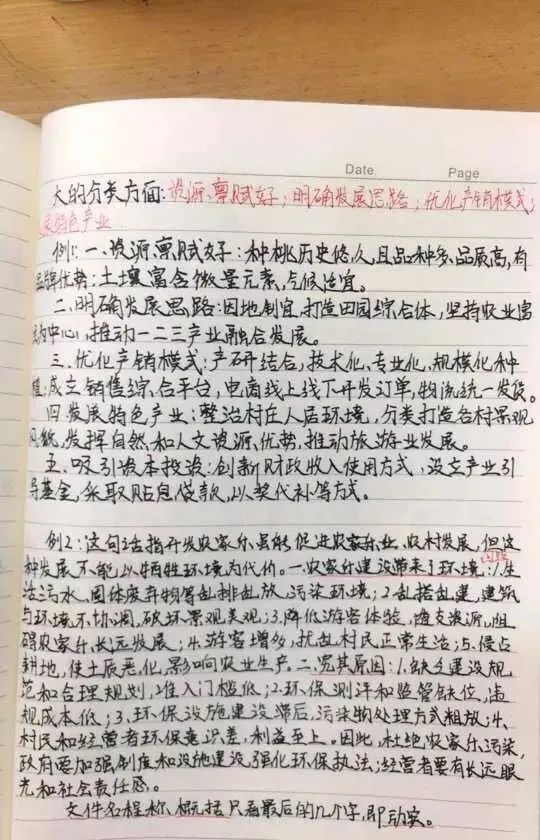 Date Page
大的分类方面:资源禀赋好;明确发展思路;优化产销模式;
展特色产业
例1:一、资源禀赋好:种桃历史悠久,且品种多、品质高,有
品牌优势;土壤富含微量元素,气候适宜。
二、明确发展思路:因地制宜,打造田园综合体,坚持农业富
为中心,推动一二三产业融合发展。
三、优化产销模式:产研结合,技术化、专业化、规模化种
植,成立销售综合平台,电商线上线下开发订单,物流统一发货。
四、发展特色产业:整治村庄人居环境,分类打造各村景观
风貌,发挥自然和人文资源优势,推动旅游业发展。
五、吸引资本投资:创新财政收入使用方式,设立产业引
导基金,采取贴息贷款,以奖代补等方式。
例2:这句话指开发农家乐虽能促进农家乐业、农村发展,但这
种发展不能以牺牲环境为代价。一、农家乐建设带来了环境问题:1.生
活污水、固体废弃物等乱排乱放,污染环境;2.乱搭乱建,建筑
与环境不协调,破坏景观美观;3.降低游客体验,透支资源,阻
碍农家乐长远发展;4.游客增多,扰乱村民正常生活;5.侵占
耕地,使土质恶化,影响农业生产。二、究其原因:1.缺乏建设规
范和合理规划,准入门槛低;2.环保测评和监管缺位,违
规成本低;3.环保设施建设滞后,污染物处理方式粗放;4.
村民和经营者环保意识差,利益至上。因此,杜绝农家乐污染,
政府要加强制度和设施建设,强化环保执法;经营者要有长远眼
光和社会责任感。
文件名程称、概括只看最后的几个字,即动宾。